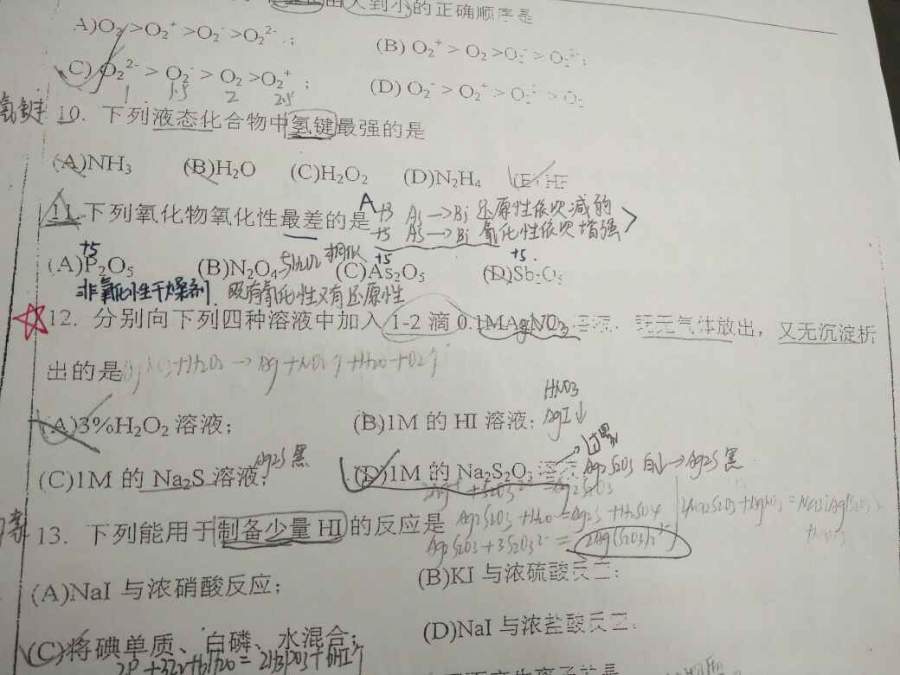 大到小的正确顺序是
A)O₂>O₂⁺>O₂⁻>O₂²⁻;
(B) O₂⁺>O₂>O₂⁻>O₂²⁻;
C) O₂²⁻>O₂⁻>O₂>O₂⁺;
(D) O₂⁻>O₂⁺>O₂²⁻>O₂
1 1.5 2 2.5
氢键 10. 下列液态化合物中氢键最强的是
(A)NH₃ (B)H₂O (C)H₂O₂ (D)N₂H₄ (E) HF
11. 下列氧化物氧化性最差的是 A
+3 As→Bi 还原性依次减弱
+5 As→Bi 氧化性依次增强
+5 +5 +5
(A)P₂O₅ (B)N₂O₄ (C)As₂O₅ (D)Sb₂O₅
非氧化性干燥剂 既有氧化性又有还原性
12. 分别向下列四种溶液中加入 1-2 滴 0.1MAgNO₃ 溶液，既无气体放出，又无沉淀析
出的是
HNO₃
(A)3%H₂O₂ 溶液;
(B)1M 的 HI 溶液; AgI↓
(C)1M 的 Na₂S 溶液; Ag₂S 黑
(D)1M 的 Na₂S₂O₃ 溶液 过量 Ag₂S₂O₃ 白↓→Ag₂S 黑
Ag₂S₂O₃+H₂O=Ag₂S+H₂SO₄
Ag₂S₂O₃+3S₂O₃²⁻=2Ag(S₂O₃)₂³⁻
13. 下列能用于制备少量 HI 的反应是
(A)NaI 与浓硝酸反应;
(B)KI 与浓硫酸反应;
(C)将碘单质、白磷、水混合;
(D)NaI 与浓盐酸反应.